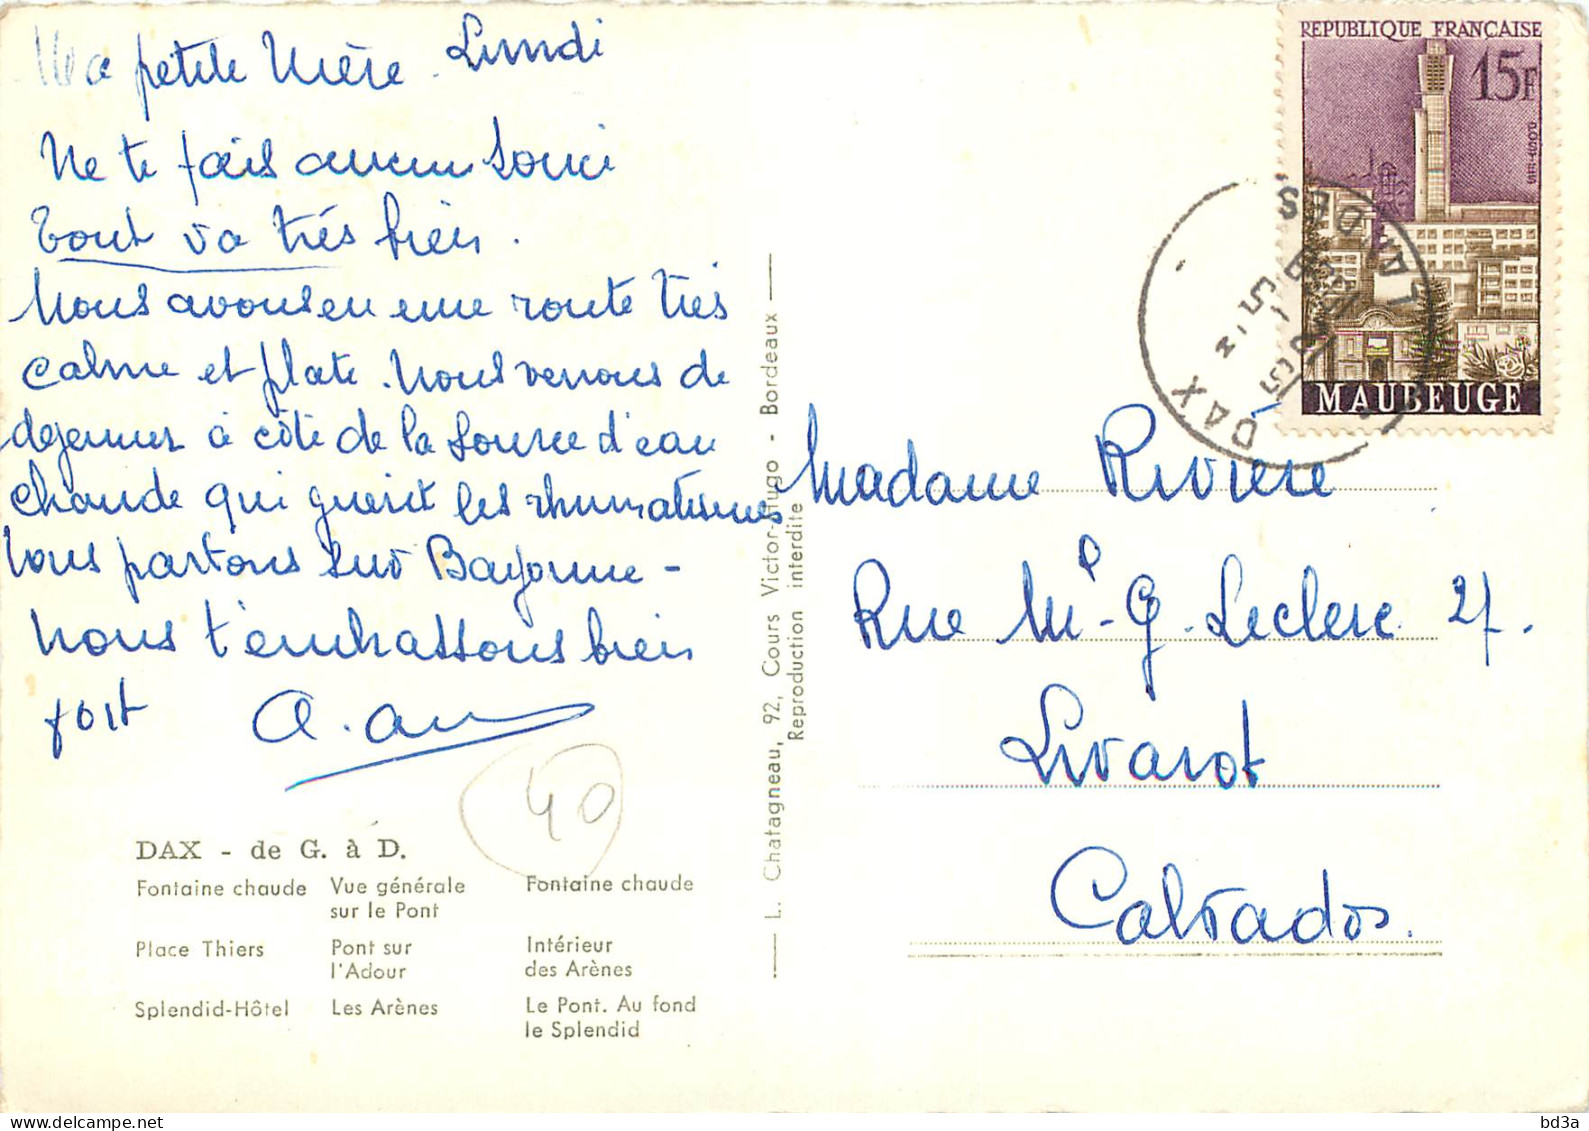 Ma petite Mère. Lundi
Ne te fais aucun souci
Tout va très bien.
Nous avons eu une route très
calme et plate. Nous venons de
dejeuner à côté de la source d'eau
chaude qui guerit les rhumatismes
Nous partons sur Bayonne -
Nous t'embrassons bien
fort
40
DAX - de G. à D.
Fontaine chaude Vue générale sur le Pont Fontaine chaude
Place Thiers Pont sur l'Adour Intérieur des Arènes
Splendid-Hôtel Les Arènes Le Pont. Au fond le Splendid
L. Chatagneau, 92, Cours Victor-Hugo - Bordeaux
Reproduction interdite
REPUBLIQUE FRANÇAISE
15F
POSTES
MAUBEUGE
DAX
LANDES
Madame Rivière
Rue Mal G. Leclerc 27.
Livarot
Calvados.
www.delcampe.net
bd3a